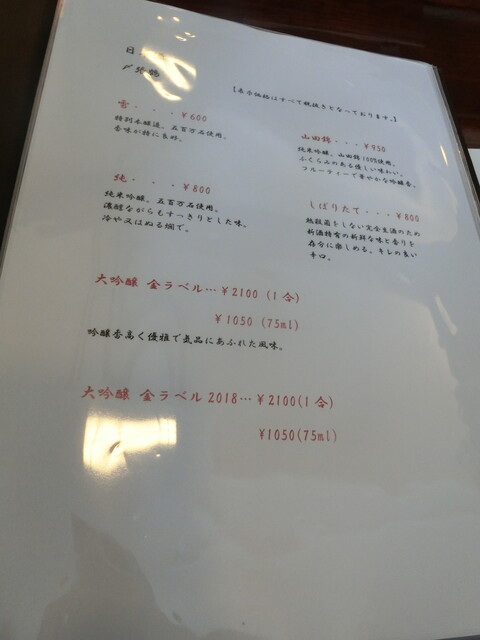 日
〆張鶴
【表示価格はすべて税抜きとなっております。】
雪・・・￥600
特別本醸造、五百万石使用。
香味が特に良好。
純・・・￥800
純米吟醸、五百万石使用。
濃醇ながらもすっきりとした味。
冷や又はぬる燗で。
山田錦・・・￥950
純米吟醸、山田錦100%使用。
ふくらみのある優しい味わい。
フルーティーで華やかな吟醸香。
しぼりたて・・・￥800
熱殺菌をしない完全生酒のため
新酒特有の新鮮な味と香りを
存分に楽しめる。キレの良い
辛口。
大吟醸 金ラベル…￥2100 (1合)
￥1050 (75ml)
吟醸香高く優雅で気品にあふれた風味。
大吟醸 金ラベル2018…￥2100(1合)
￥1050(75ml)